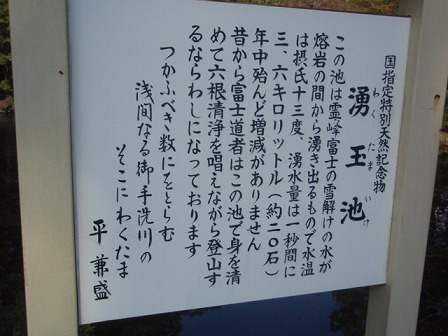 国指定特別天然記念物
湧玉池
わくたまいけ
この池は霊峰富士の雪解けの水が
熔岩の間から湧き出るもので水温
は摂氏十三度、湧水量は一秒間に
三、六キロリットル（約二〇石）
年中殆んど増減がありません
昔から富士道者はこの池で身を清
めて六根清浄を唱えながら登山す
るならわしになっております
つかふべき数にをとらむ
浅間なる御手洗川の
そこにわくたま
平兼盛